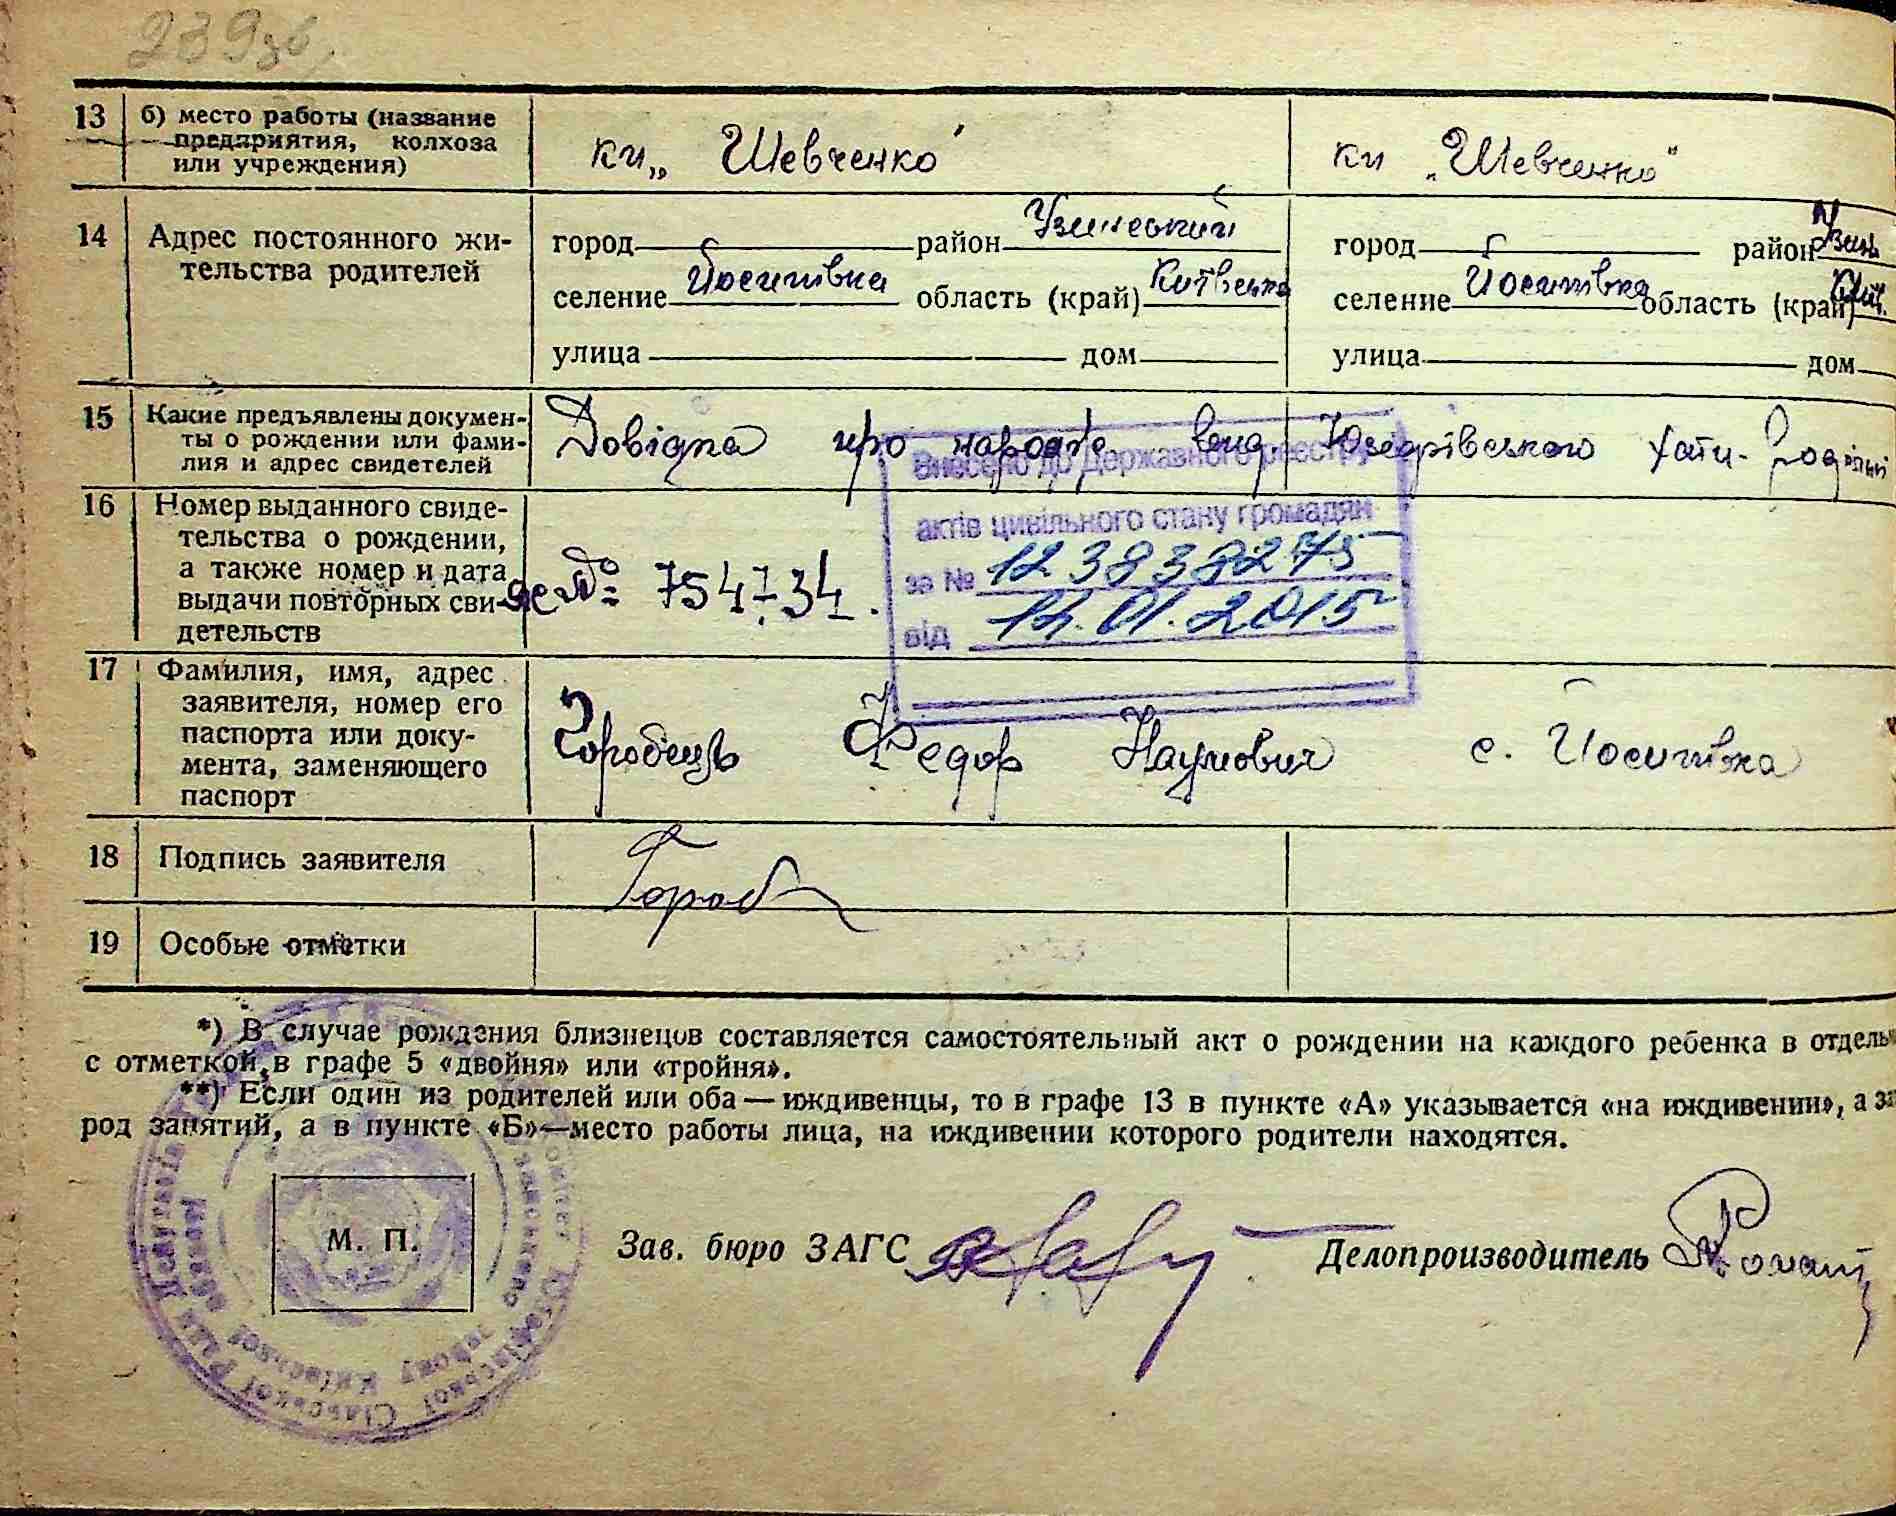 239зв.
13 б) место работы (название предприятия, колхоза или учреждения) кп „Шевченко" кп „Шевченко"
14 Адрес постоянного жительства родителей
город район Узинський город район Узин
селение Йосипівка область (край) Київська селение Йосипівка область (край) Київ.
улица дом улица дом
15 Какие предъявлены документы о рождении или фамилия и адрес свидетелей Довідка про народж Юзефівського хати-
Внесено до Державного реєстру
актів цивільного стану громадян
за № 1238388275
від 12.01.2015
16 Номер выданного свидетельства о рождении, а также номер и дата выдачи повторных свидетельств № 754734.
17 Фамилия, имя, адрес заявителя, номер его паспорта или документа, заменяющего паспорт Горобець Федор Наумович с. Йосипівка
18 Подпись заявителя Гороб
19 Особые отметки
*) В случае рождения близнецов составляется самостоятельный акт о рождении на каждого ребенка в отдель
с отметкой в графе 5 «двойня» или «тройня».
**) Если один из родителей или оба — иждивенцы, то в графе 13 в пункте «А» указывается «на иждивении», а за
род занятий, а в пункте «Б»—место работы лица, на иждивении которого родители находятся.
М. П.
Зав. бюро ЗАГС Делопроизводитель